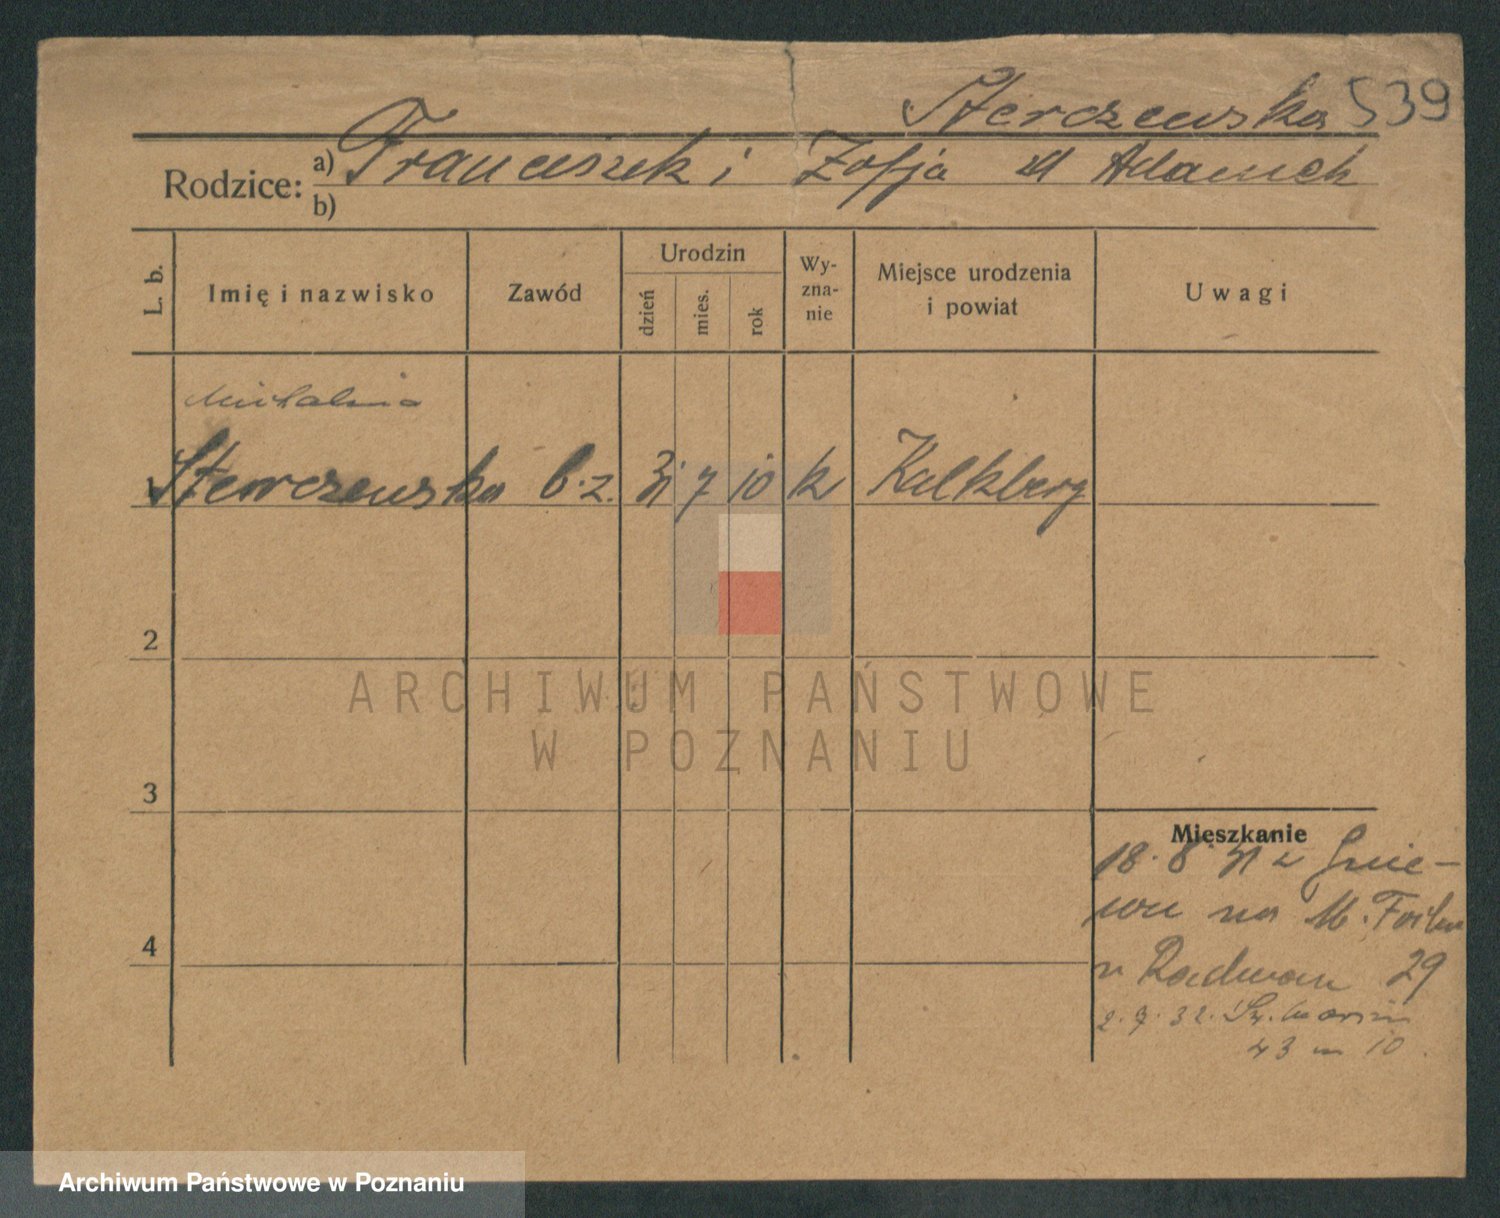 Sterczewska 539
Rodzice: a) Franciszek i Zofja z d Adamek
b)
L. b. Imię i nazwisko Zawód Urodzin dzień mies. rok Wy-zna-nie Miejsce urodzenia i powiat Uwagi
Michalina
1 Sterczewska b.z. 31 7 10 k Kalkberg
2
ARCHIWUM PAŃSTWOWE
W POZNANIU
3
Mieszkanie
18. 8 31 z Gnie-
wu na M. Focha
n Radwan 29
4
2. 9. 32. Św. Marcin
43 m 10.
Archiwum Państwowe w Poznaniu